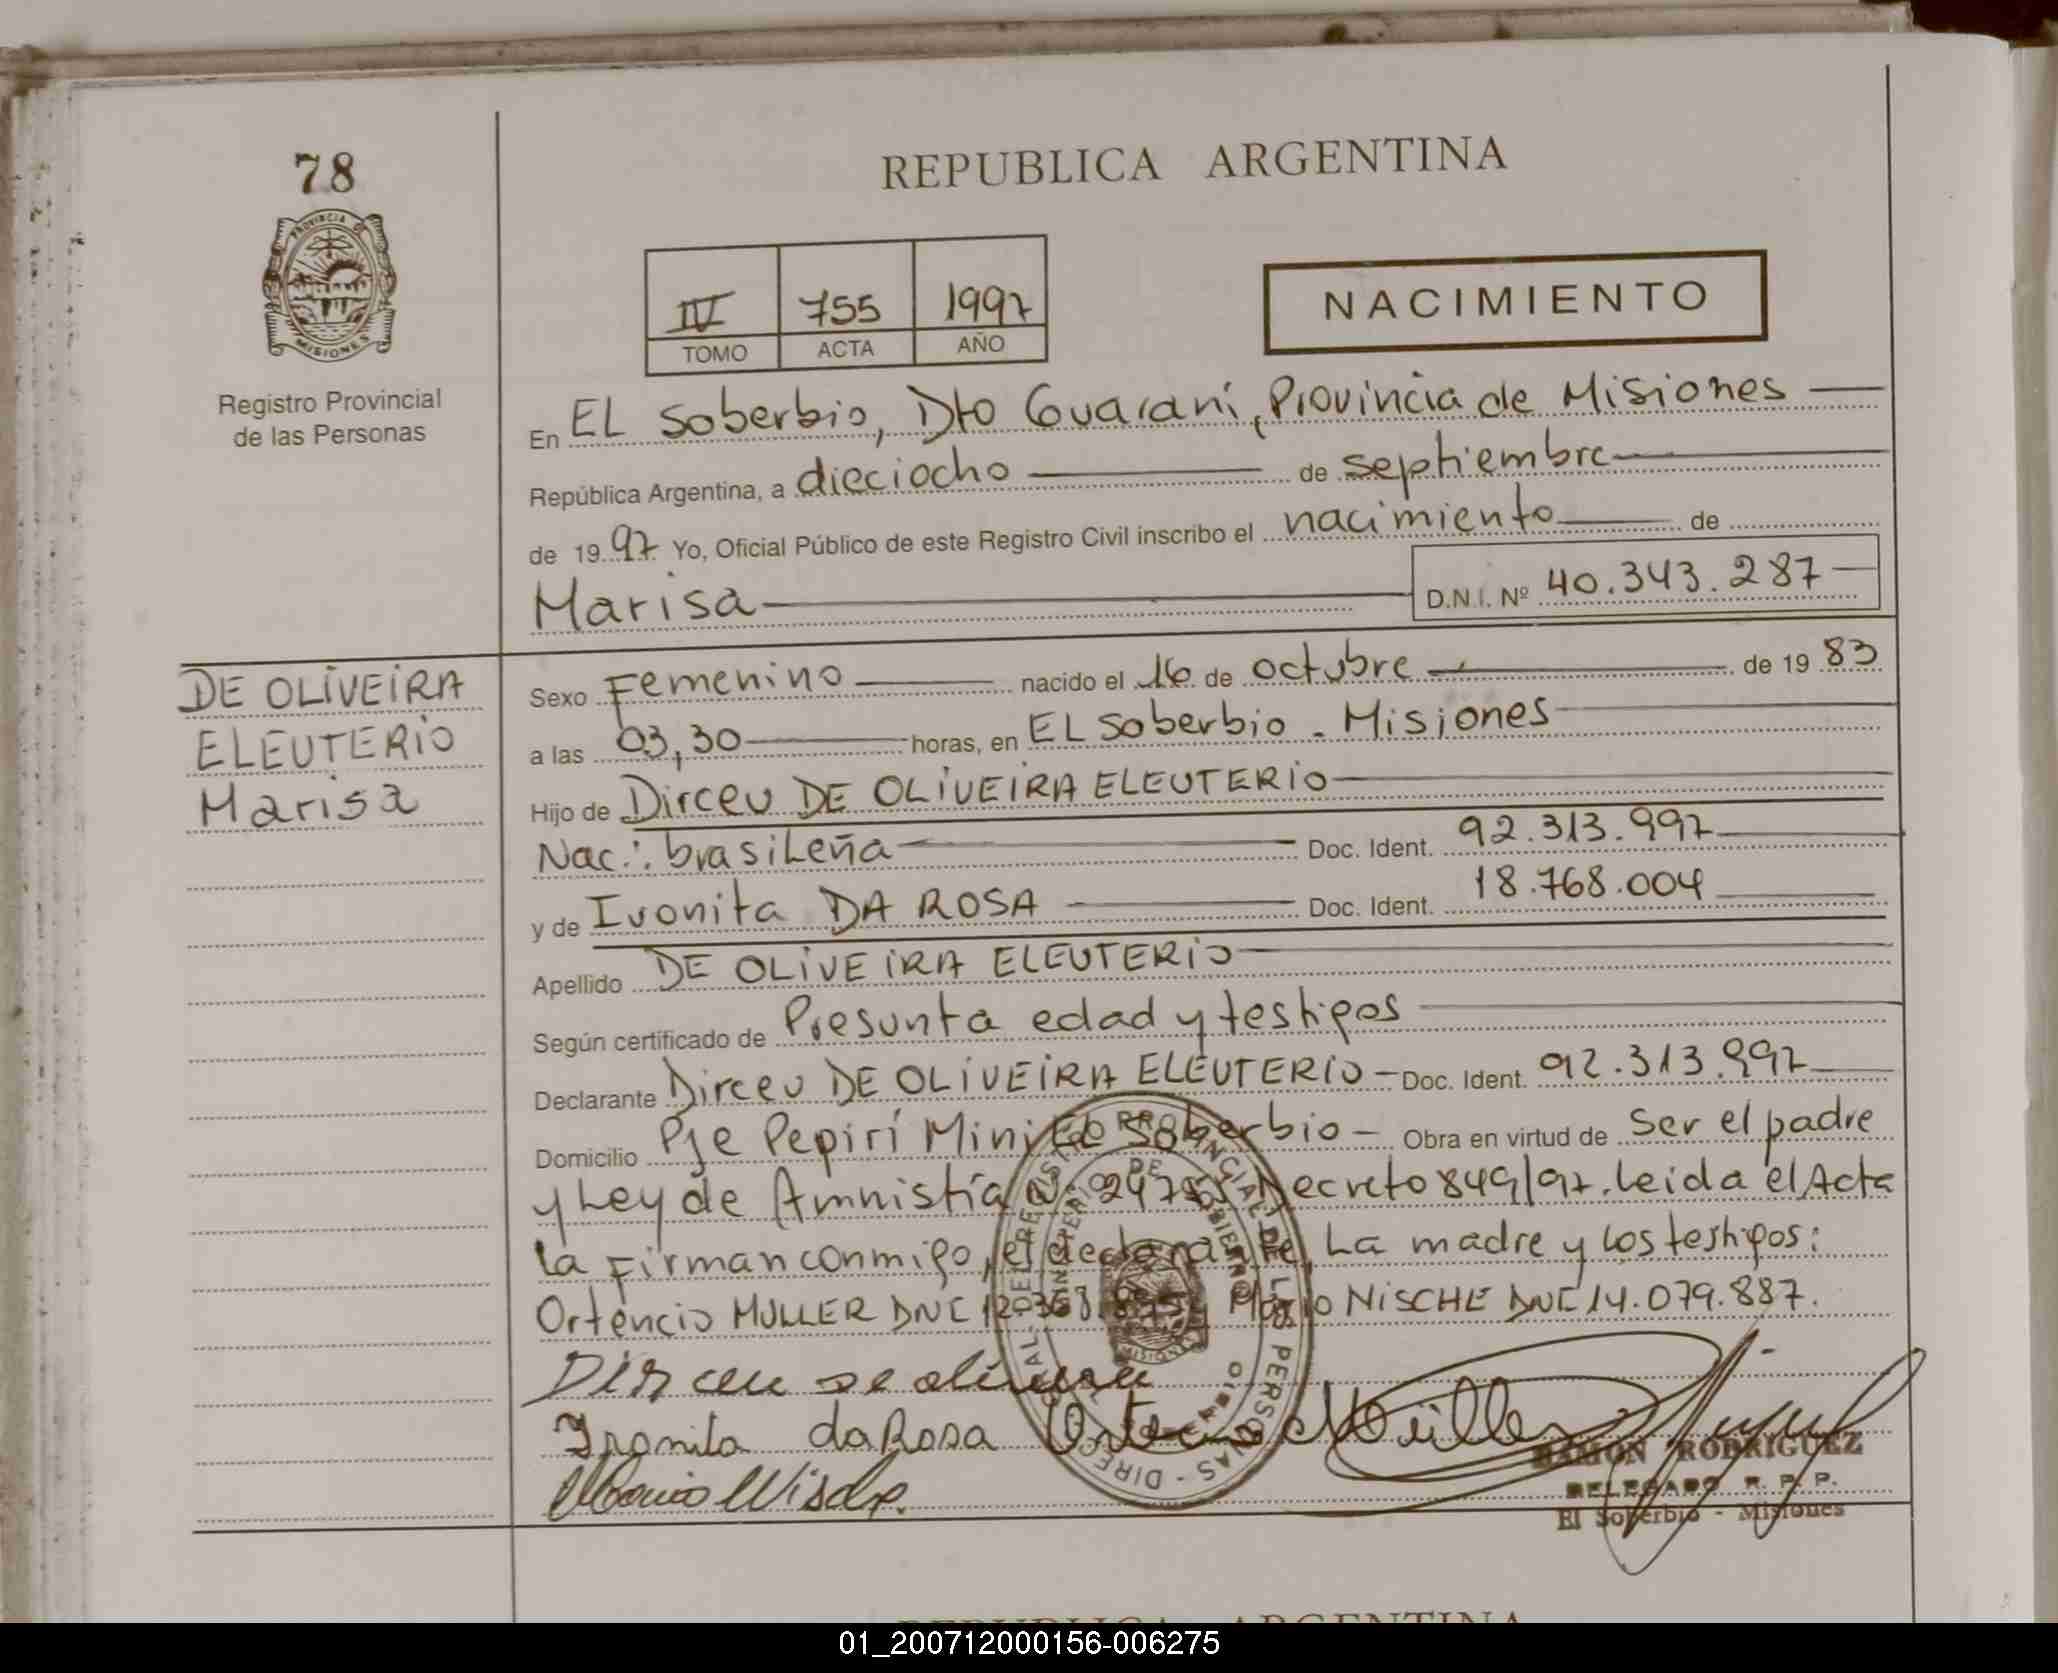 78
PROVINCIA D
MISIONES
Registro Provincial
de las Personas
REPUBLICA ARGENTINA
IV 755 1997
TOMO ACTA AÑO
NACIMIENTO
En EL Soberbio, Dto Guaraní, Provincia de Misiones
República Argentina, a dieciocho de septiembre
de 1997 Yo, Oficial Público de este Registro Civil inscribo el nacimiento de
Marisa D.N.I. Nº 40.343.287
DE OLIVEIRA
ELEUTERIO
Marisa
Sexo Femenino nacido el 16 de octubre de 1983
a las 03,30 horas, en EL Soberbio - Misiones
Hijo de Dirceu DE OLIVEIRA ELEUTERIO
Nac.: brasileña Doc. Ident. 92.313.997
y de Ivonita DA ROSA Doc. Ident. 18.768.004
Apellido DE OLIVEIRA ELEUTERIO
Según certificado de Presunta edad y testigos
Declarante Dirceu DE OLIVEIRA ELEUTERIO - Doc. Ident. 92.313.997
Domicilio Pje Pepirí Miní El Soberbio - Obra en virtud de Ser el padre
y Ley de Amnistía Decreto 849/97. Leida el Acta
la firman conmigo, el declarante, La madre y los testigos:
Ortencio MULLER DNI y Mario NISCHE DNI 14.079.887.
Dirceu de oliveira
Ivonita da Rosa Ortencio Müller
Mario Nische
RAMON RODRIGUEZ
DELEGADO R. P. P.
El Soberbio - Misiones
REPUBLICA ARGENTINA
01_200712000156-006275